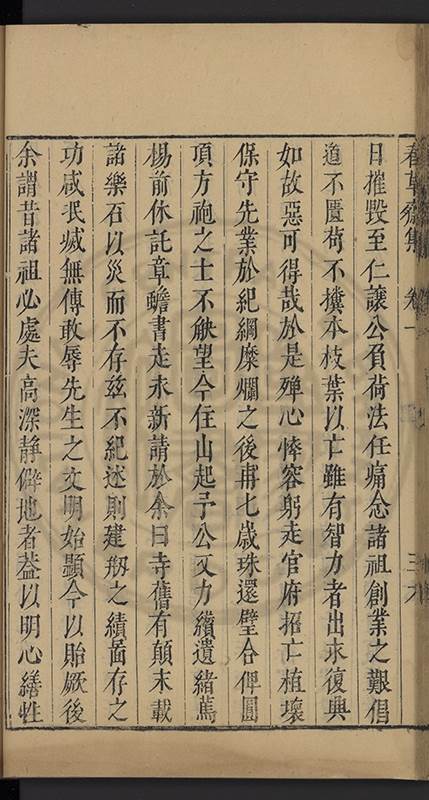 春草齋集 卷十 三九
日摧毀至仁讓公負荷法任痛念諸祖創業之艱倡
道不匱茍不攓本枝葉以亡雖有智力者出求復興
如故惡可得哉於是殫心悴容躬走官府招亡植壞
保守先業於紀綱糜爛之後甫七歲珠還璧合俾圓
頂方袍之士不觖望今住山起予公又力纘遺緒蔦
楊前休託章蟾書走永新請於余曰寺舊有顛末載
諸樂石以災而不存茲不紀述則建剏之績啚存之
功咸泯滅無傳敢辱先生之文明始顯今以貽厥後
余謂昔諸祖心處夫高深靜僻地者葢以明心繕性